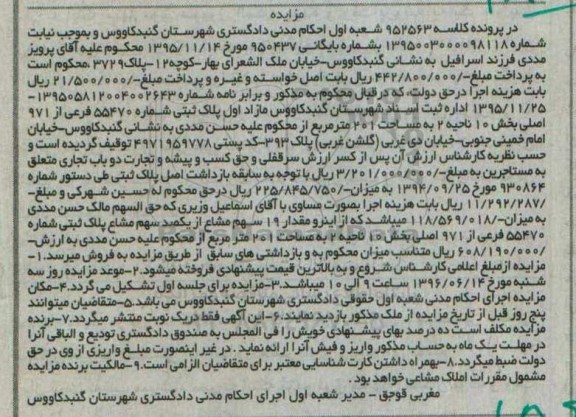 مزایده
در پرونده کلاسه ۹۵۲۵۶۳ شعبه اول احکام مدنی دادگستری شهرستان گنبدکاووس و بموجب نیابت
شماره ۱۳۹۵۰۰۳۰۰۰۰۹۸۱۱۸ بشماره بایگانی ۹۵۰۴۳۷ مورخ ۱۳۹۵/۱۱/۱۴ محکوم علیه آقای پرویز
مددی فرزند اسرافیل به نشانی گنبدکاووس-خیابان ملک الشعرای بهار-کوچه ۱۲-پلاک ۳۷۲۹ محکوم است
به پرداخت مبلغ-/۴۴۲/۸۰۰/۰۰۰ ریال بابت اصل خواسته و غیره و پرداخت مبلغ-/۲۱/۵۰۰/۰۰۰ ریال
بابت هزینه اجرا درحق دولت، که درقبال محکوم به مذکور و برابر نامه شماره ۱۳۹۵۰۵۸۱۲۰۰۴۰۰۲۶۴۳-
۱۳۹۵/۱۱/۲۵ اداره ثبت اسناد شهرستان گنبدکاووس مازاد اول پلاک ثبتی شماره ۵۵۴۷۰ فرعی از ۹۷۱
اصلی بخش ۱۰ ناحیه ۲ به مساحت ۲۰۱ مترمربع از محکوم علیه حسن مددی به نشانی گنبدکاووس-خیابان
امام خمینی جنوبی-خیابان دی غربی (گلشن غربی) پلاک ۳۹۳-کد پستی ۴۹۷۱۹۵۹۷۷۸ توقیف گردیده است و
حسب نظریه کارشناس ارزش آن پس از کسر ارزش سرقفلی و حق کسب و پیشه و تجارت دو باب تجاری متعلق
به مستاجرین به مبلغ-/۳/۲۰۱/۰۰۰/۰۰۰ ریال با توجه به سابقه بازداشت اصل پلاک ثبتی طی دستور شماره
۹۳۰۸۶۴ مورخ ۱۳۹۴/۰۹/۲۵ به میزان-/۲۲۵/۸۴۵/۷۵۰ ریال درحق محکوم له حسین شهرکی و مبلغ-
/۱۱/۲۹۲/۲۸۷ ریال بابت هزینه اجرا بصورت مساوی با آقای اسماعیل وزیری که حق السهم مالک حسن مددی
به میزان-/۱۱۸/۵۶۹/۰۱۸ میباشد که از اینرو مقدار ۱۹ سهم مشاع از یکصد سهم مشاع پلاک ثبتی شماره
۵۵۴۷۰ فرعی از ۹۷۱ اصلی بخش ۱۰ ناحیه ۲ به مساحت ۲۰۱ متر مربع از محکوم علیه حسن مددی به ارزش-
/۶۰۸/۱۹۰/۰۰۰ ریال متناسب میزان محکوم به و بازداشتی های سابق از طریق مزایده به فروش میرسد.۱-
مزایده ازمبلغ اعلامی کارشناس شروع و به بالاترین قیمت پیشنهادی فروخته میشود.۲-موعد مزایده روز سه
شنبه مورخ ۱۳۹۶/۰۶/۱۴ ساعت ۹ الی ۱۰ میباشد.۳-مزایده برای جلسه اول تشکیل می گردد.۴-مکان
مزایده اجرای احکام مدنی شعبه اول حقوقی دادگستری شهرستان گنبدکاووس می باشد.۵-متقاضیان میتوانند
پنج روز قبل از تاریخ مزایده از ملک مذکور بازدید نمایند.۶-این آگهی فقط دریک نوبت منتشر میگردد.۷-برنده
مزایده مکلف است ده درصد بهای پیشنهادی خویش را فی المجلس به صندوق دادگستری تودیع و الباقی آنرا
در مهلت یک ماه به حساب مذکور واریز و فیش آنرا ارائه نماید . در غیر اینصورت مبلغ واریزی از وی در حق
دولت ضبط میگردد.۸-بهمراه داشتن کارت شناسایی معتبر برای متقاضیان الزامی است.۹-مالکیت برنده مزایده
مشمول مقررات املاک مشاعی خواهد بود .
مغربی قوجق - مدیر شعبه اول اجرای احکام مدنی دادگستری شهرستان گنبدکاووس